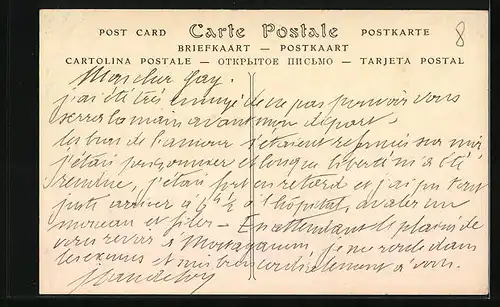 POST CARD Carte Postale POSTKARTE
BRIEFKAART — POSTKAART
CARTOLINA POSTALE — ОТКРЫТОЕ ПИСЬМО — TARJETA POSTAL
8
Mon cher Gay.
j'ai été très ennuyé de ne pas pouvoir vous
serrer la main avant mon départ.
les bras de l'amour s'étaient refermés sur moi
j'étais prisonnier et lorsque liberté m'a été
rendue, j'étais fort en retard et j'ai pu tout
juste arriver à 6h ½ à l'hôpital, avaler un
morceau et filer — En attendant le plaisir de
vous revoir à Mostaganem, je me rends dans
et suis bien cordialement à vous.